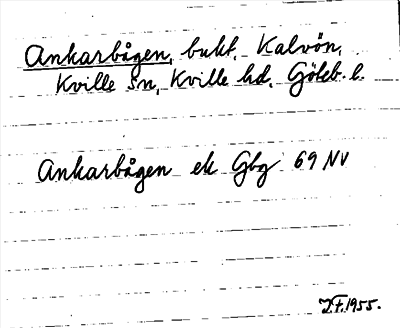 Ankarbågen, bukt, Kalvön,
Kville sn, Kville hd, Göteb. l.
Ankarbågen ek Gbg 69 NV
J.F. 1955.